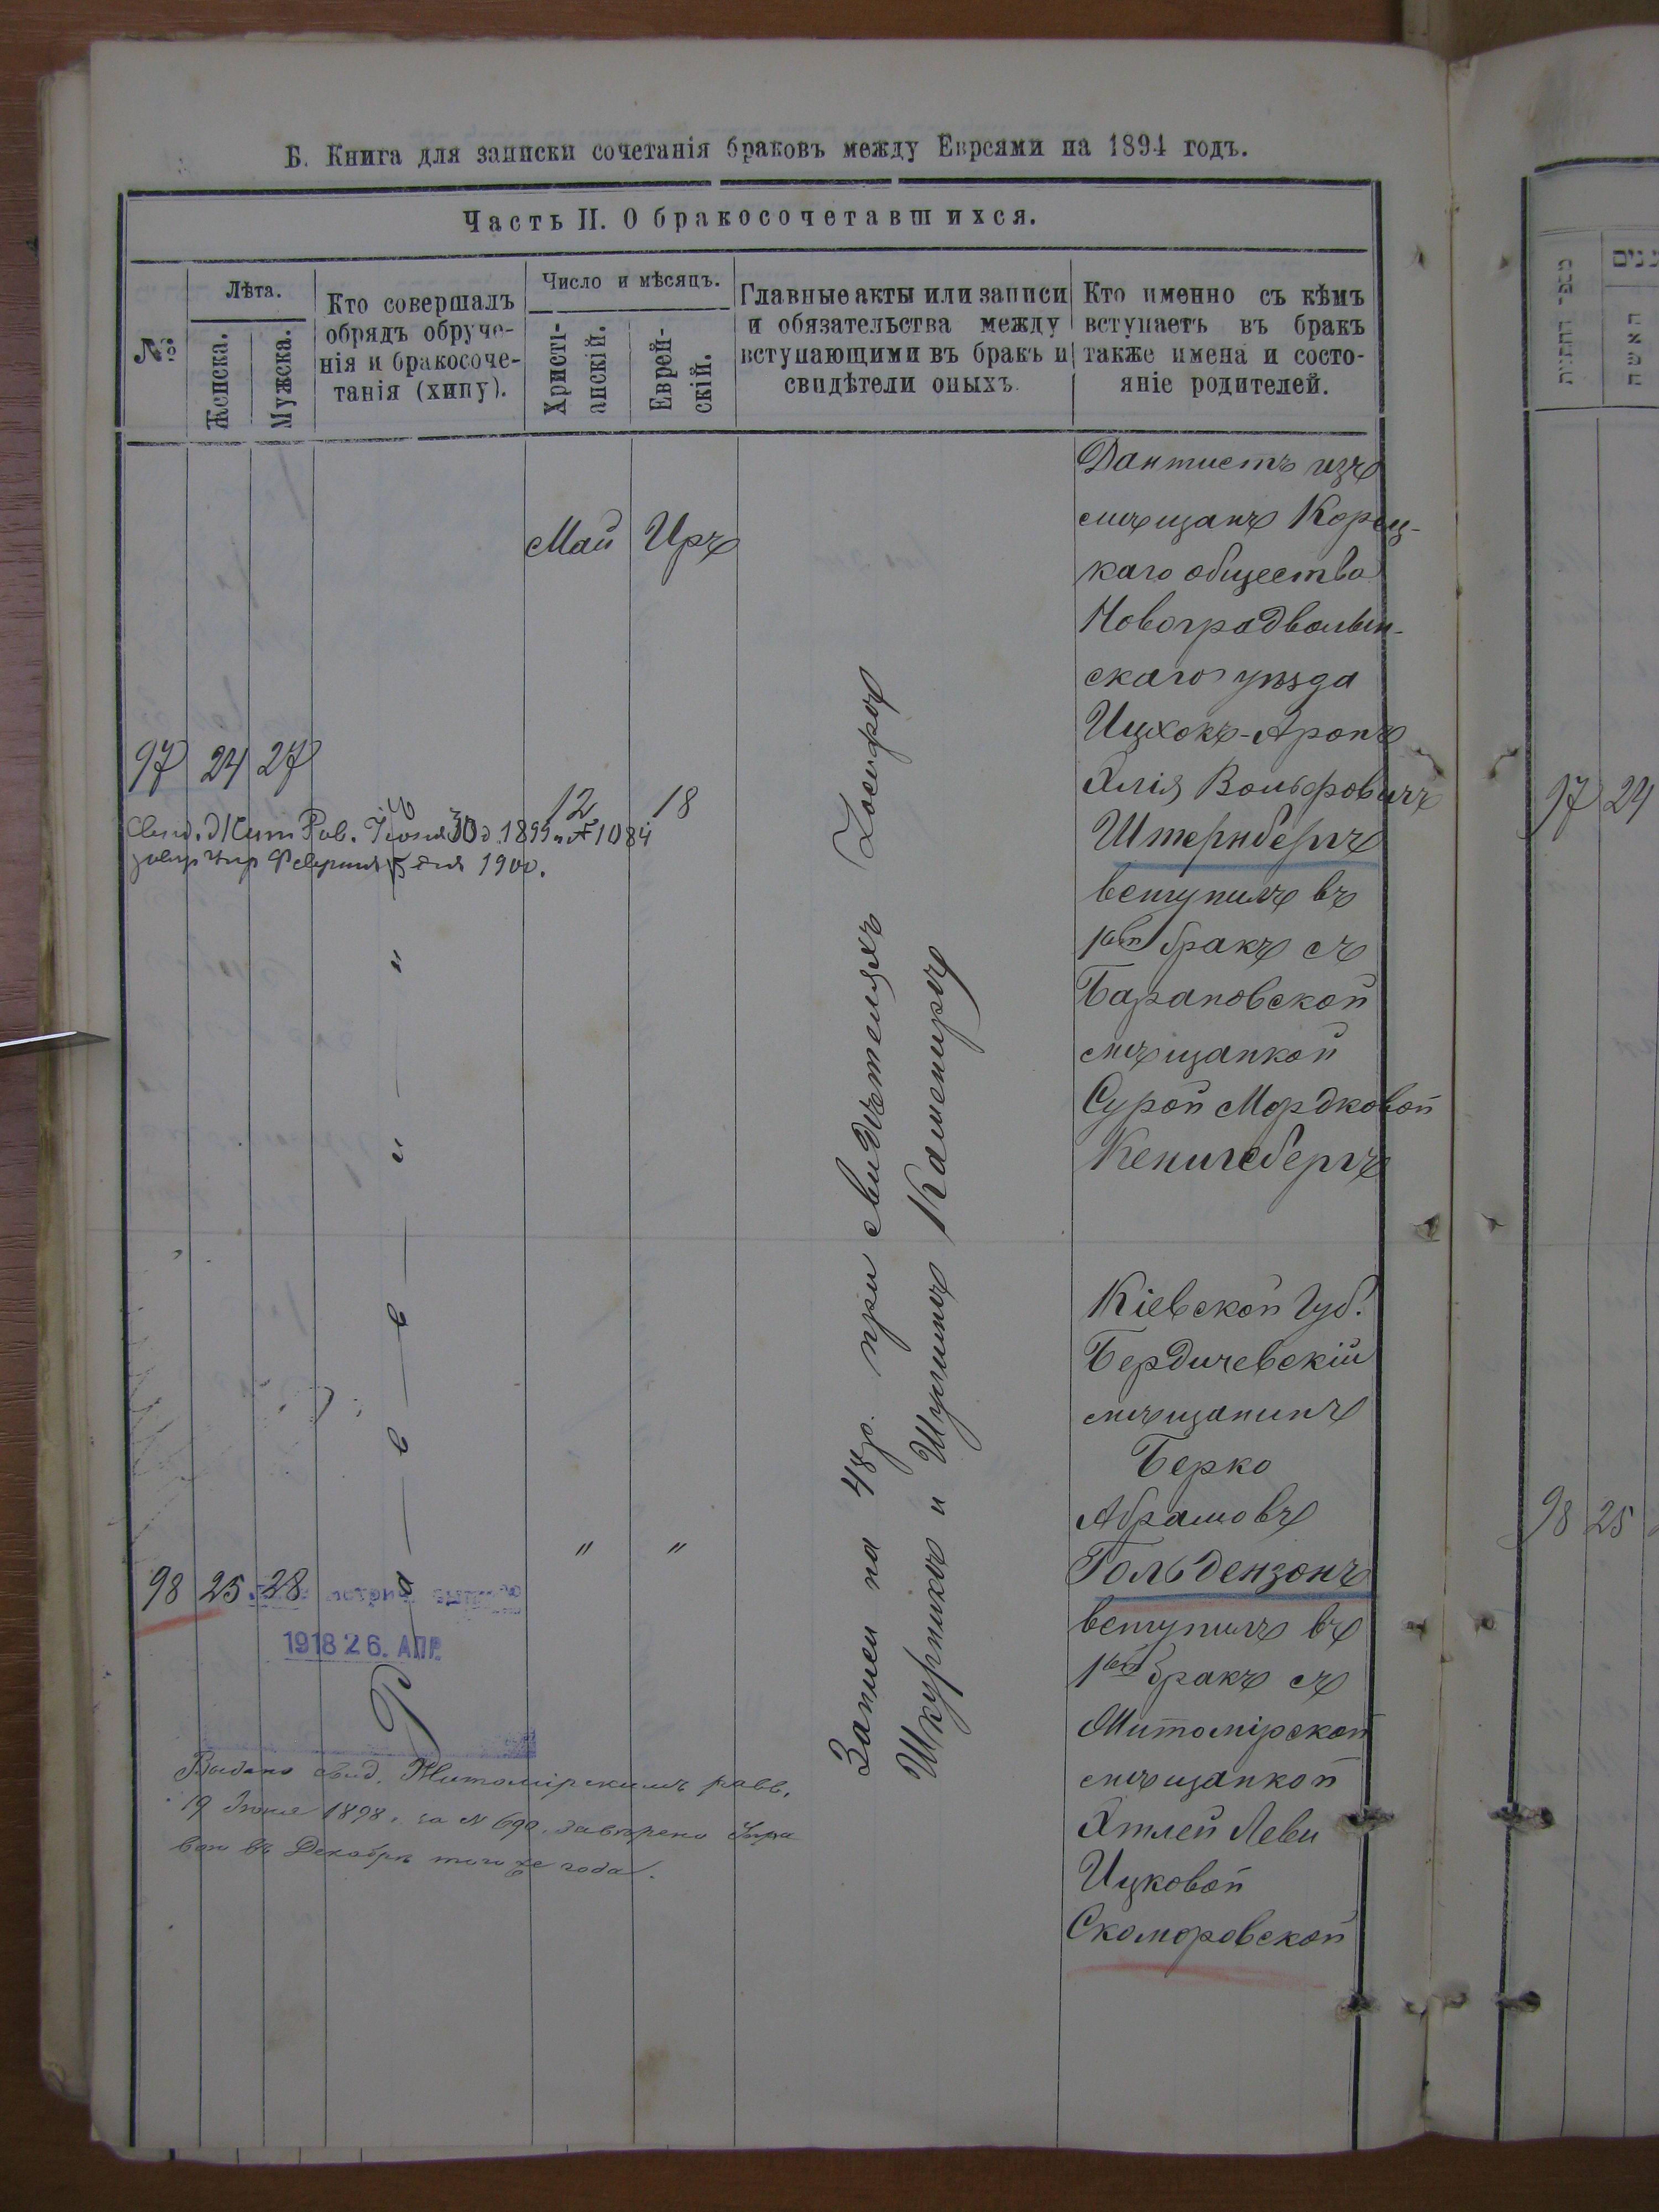 Б. Книга для записки сочетанія браковъ между Евреями на 1894 годъ.
Часть II. О бракосочетавшихся.
№
Лѣта.
Женска.
Мужска.
Кто совершалъ
обрядъ обруче-
нія и бракосоче-
танія (хипу).
Число и мѣсяцъ.
Христі-
анскій.
Еврей-
скій.
Главные акты или записи
и обязательства между
вступающими въ бракъ и
свидѣтели оныхъ.
Кто именно съ кѣмъ
вступаетъ въ бракъ
также имена и состо-
яніе родителей.
Май Иръ
97 24 27
12 18
Свид. Жит. Рав. Іюня 30 д. 1899 № 1084
Февраля 5 дня 1900.
Дантистъ изъ
мѣщанъ Корец-
каго общества
Новоградволын-
скаго уѣзда
Ицхокъ-Аронъ
Элія Вольфовичъ
Штернбергъ
вступилъ въ
1вый бракъ съ
Барановской
мѣщанкой
Сурой Мордковой
Кенигсбергъ
Записи на 48 р. при свидѣтеляхъ
Шкурникъ и Шугманъ
98 25 28
" "
1918 26. АПР.
Выдано свид. Житомірскимъ равв.
19 Іюня 1898, за № 690. Завѣрено Упра
вою въ Декабрѣ того же года.
Кіевской Губ.
Бердичевскій
мѣщанинъ
Берко
Абрамовъ
Гольдензонъ
вступилъ въ
1вый бракъ съ
Житомірской
мѣщанкой
Этлей Леви
Ицковой
Скоморовской
97 24
98 25